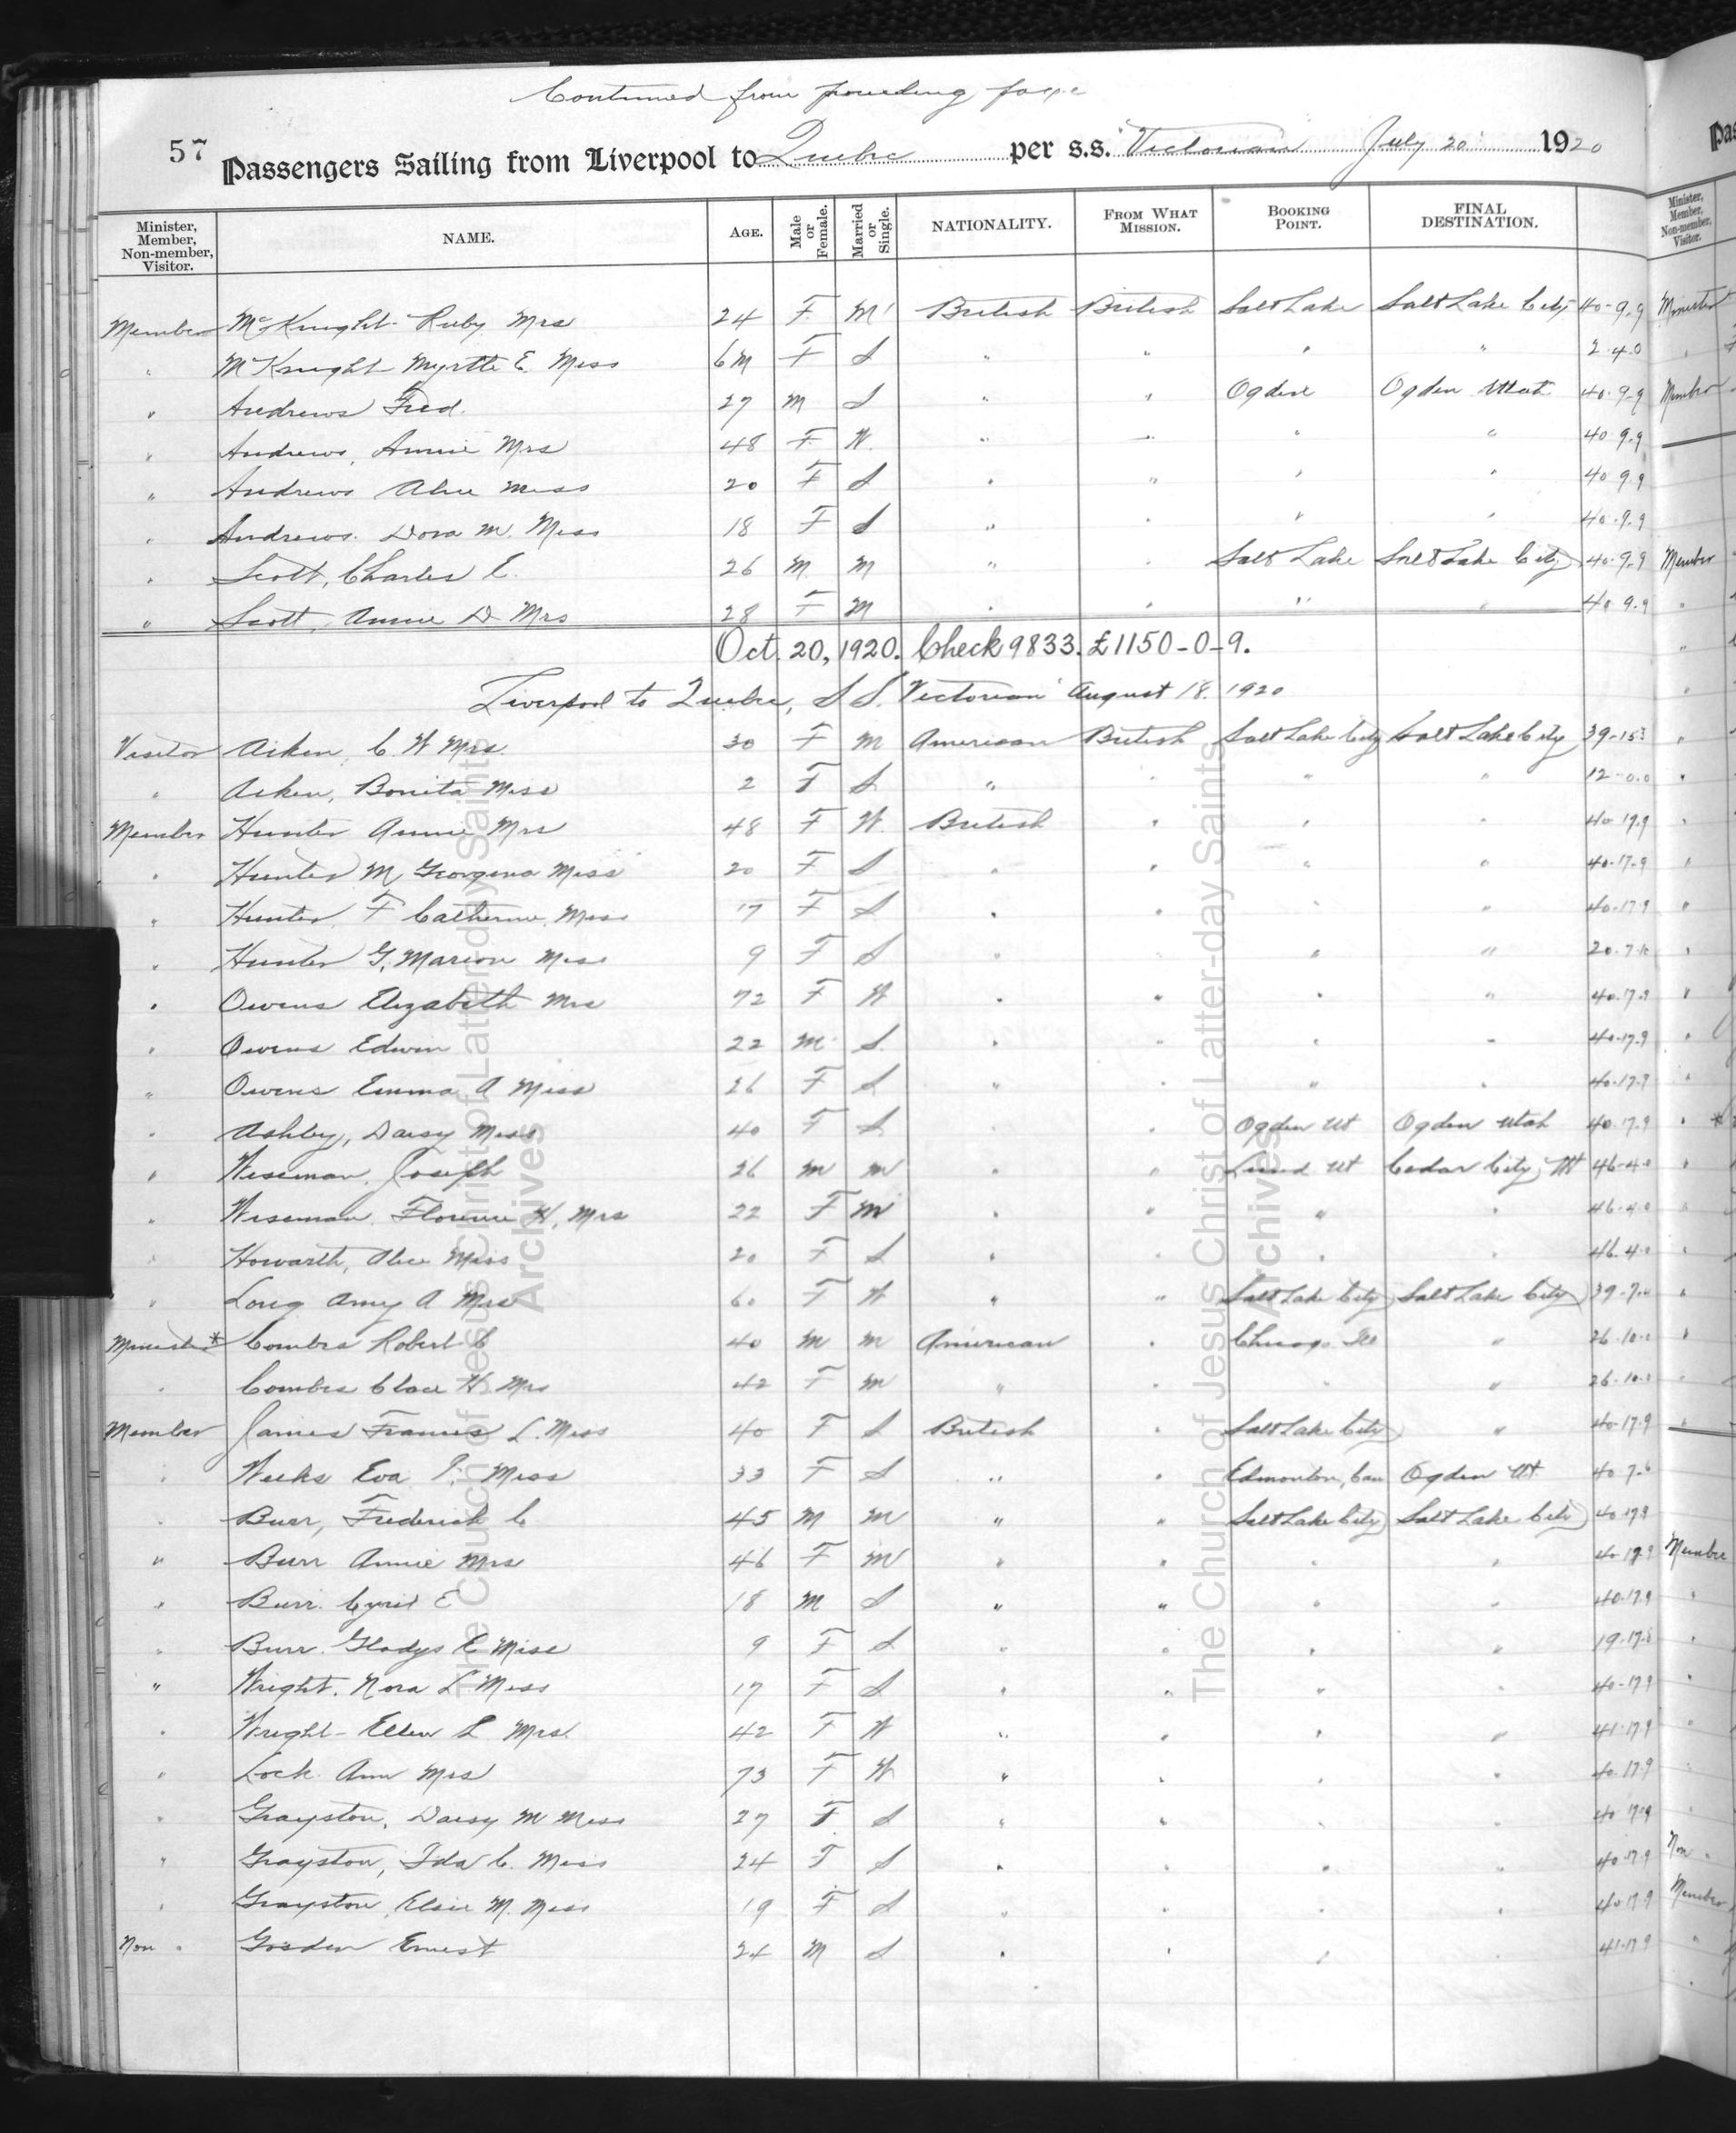 Continued from preceding page
57 Passengers Sailing from Liverpool to Quebec per s.s. "Victorian" July 20 1920
Minister, Member, Non-member, Visitor. NAME. AGE. Male or Female. Married or Single. NATIONALITY. FROM WHAT MISSION. BOOKING POINT. FINAL DESTINATION.
Member McKnight Ruby Mrs 24 F M British British Salt Lake Salt Lake City 40-9-9
" McKnight Myrtle E. Miss 6M F S " " " " 2-4-0
" Andrews Fred. 27 M S " " Ogden Ogden Utah 40-9-9
" Andrews, Annie Mrs 48 F W. " " " " 40-9-9
" Andrews Alice Miss 20 F S " " " " 40 9 9
" Andrews. Dora M. Miss 18 F S " " " " 40-9-9
" Scott, Charles E. 26 M M " " Salt Lake Salt Lake City 40-9-9
" Scott, Annie D Mrs 28 F M " " " " 40 9-9
Oct. 20, 1920. Check 9833. £1150-0-9.
Liverpool to Quebec, S S. "Victorian" August 18. 1920
Visitor Aiken, C W Mrs. 30 F M American British Salt Lake City Salt Lake City 39-15-3
" Aiken, Bonita Miss 2 F S " " " " 12-0-0
Member Hunter Annie Mrs 48 F W. British " " " 40 17.9
" Hunter M Georgena Miss 20 F S " " " " 40-17-9
" Hunter, F Catherine, Miss 17 F S " " " " 40-17 9
" Hunter G. Marion Miss 9 F S " " " " 20-7
" Owens Elizabeth Mrs 72 F W " " " " 40.17.9
" Owens Edwin 22 M S. " " " " 40-17.9
" Owens Emma A Miss 26 F S " " " " 40-17-9
" Ashley, Daisy Miss 40 F S " " Ogden Ut Ogden Utah 40 17.9
" Wiseman, Joseph 26 M M " " Lund Ut Cedar City, Ut 46-4-0
" Wiseman, Florence H, Mrs 22 F M " " " " 46-4-0
" Howarth, Alice Miss 20 F S " " " " 46.4-0
" Long Amy A Mrs 60 F W " " Salt Lake City Salt Lake City 39-7
Minister * Combs Robert C 40 M M American " Chicago Ill " 26-10-0
" Combs Clara H Mrs 42 F M " " " " 26-10-0
Member James Frances L. Miss 40 F S British " Salt Lake City " 40-17.9
" Weeks Eva Miss 33 F S " " Edmonton, Can Ogden Ut. 40 7-6
" Burr, Frederick C. 45 M M " " Salt Lake City Salt Lake City 40 17.9
" Burr Annie Mrs 46 F M " " " " 40 17 9
" Burr. Cyril E 18 M S " " " " 40.17.9
" Burr. Gladys E Miss 9 F S " " " " 19-17
" Wright. Nora L Miss 17 F S " " " " 40-17 9
" Wright- Ellen L Mrs. 42 F W " " " " 41-17 9
" Lock. Ann Mrs 73 F W " " " " 40 17 9
" Grayston, Daisy M Miss 27 F S " " " " 40 17-9
" Grayston, Ida C. Miss 24 F S " " " " 40 17 9
" Grayston, Elsie M. Miss 19 F S " " " " 40 17 9
Non " Gosden Ernest 24 M S " " " " 41-17 9
The Church of Jesus Christ of Latter-day Saints
Archives
The Church of Jesus Christ of Latter-day Saints
Archives
Minister, Member, Non-member, Visitor.
Minister
Member
Member
Member
Non "
Member